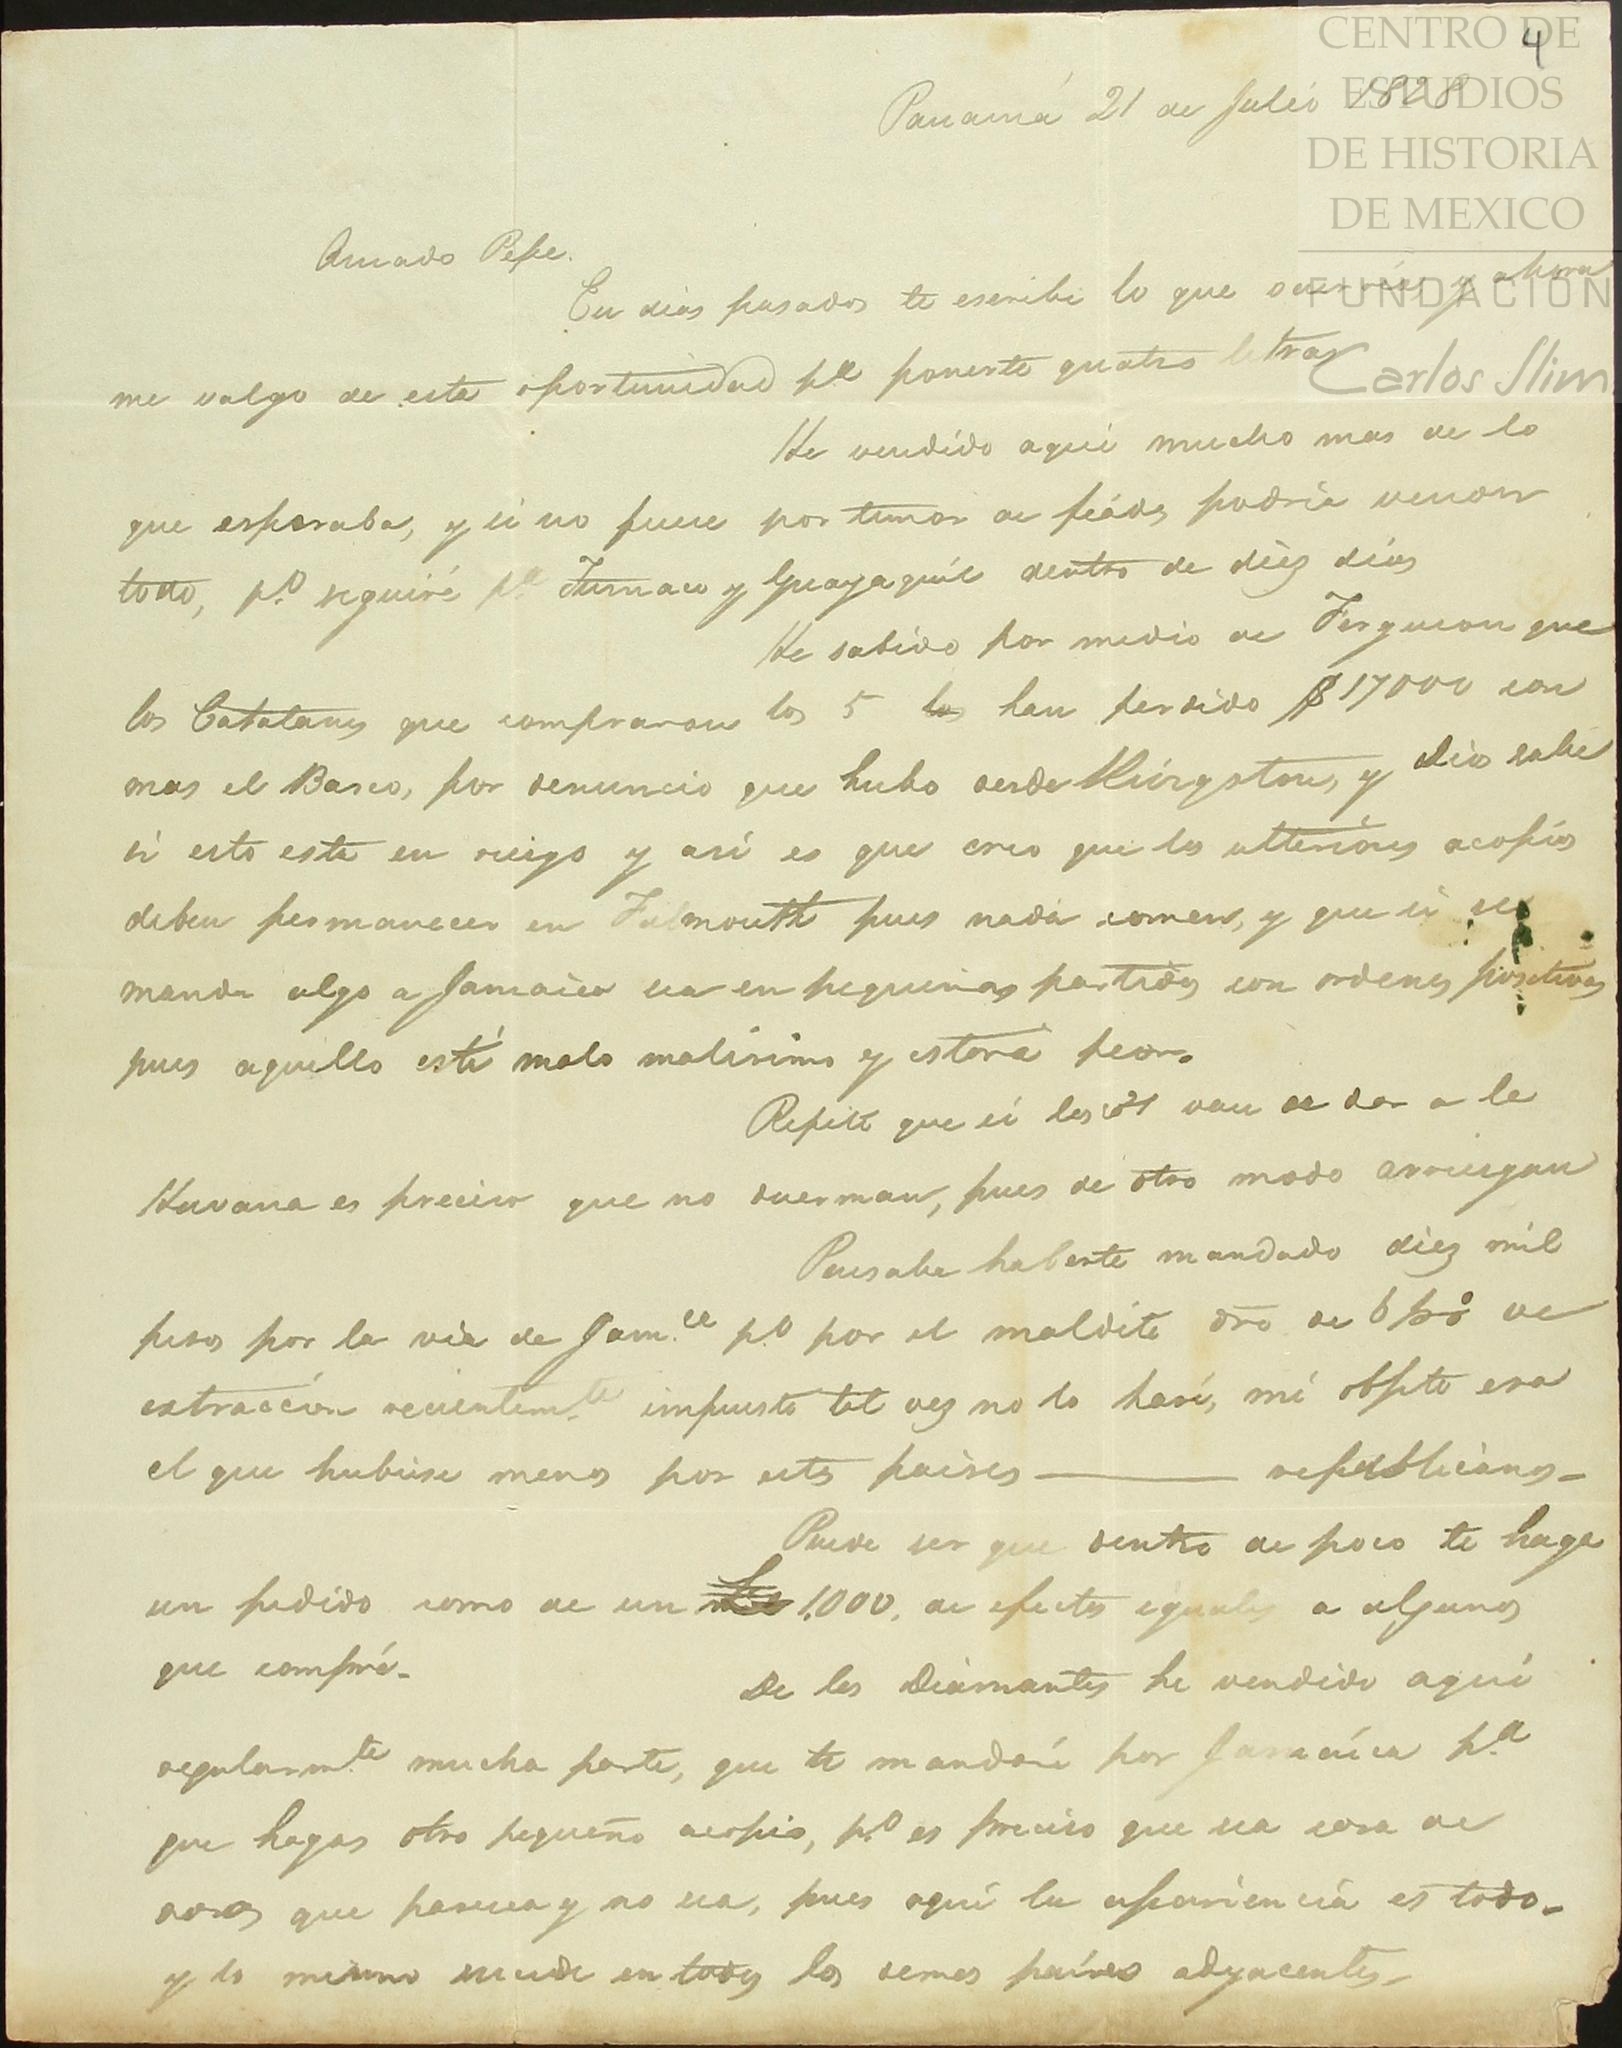 CENTRO DE
ESTUDIOS
DE HISTORIA
DE MEXICO
FUNDACIÓN
Carlos Slim
4
Panamá 21 de Julio 1828
Amado Pepe.
En dias pasados te escribi lo que y ahora
me valgo de esta oportunidad pa ponerte quatro letras
He vendido aqui mucho mas de lo
que esperaba, y si no fuese por temor de fiados podria vender
todo, po seguiré pa Tumaco y Guayaquil dentro de diez dias
He sabido por medio de Ferguson que
los Catalanes que compraron los 5 los han perdido $17000 con
mas el Barco, por denuncio que hubo desde Kingston, y Dios sabe
si esto esta en riesgo y asi es que creo que los ulteriores acopios
deben permanecer en Falmouth pues nada comen, y que si se
manda algo a Jamaica sea en pequeñas partidas con ordenes positivas
pues aquello está malo malisimo y estará peor.
Repito que si los 21 van a dar a la
Havana es preciso que no duerman, pues de otro modo arriesgan
Pensaba haberte mandado diez mil
pesos por la via de Jam.ca po por el maldito dro de 6 p% de
extraccion recientem.te impuesto tal vez no lo haré, mi objeto era
el que hubiese menos por estos paises ——— republicanos-
Puede ser que dentro de poco te haga
un pedido como de un 1.000, de efectos iguales a algunos
que compré-
De los Diamantes he vendido aqui
regularm.te mucha parte, que te mandaré por Jamaica pa
que hagas otro pequeño acopio, po es preciso que sea cosa de
que paresca y no sea, pues aqui la apariencia es todo-
y lo mismo sucede en todos los demas paises adyacentes-